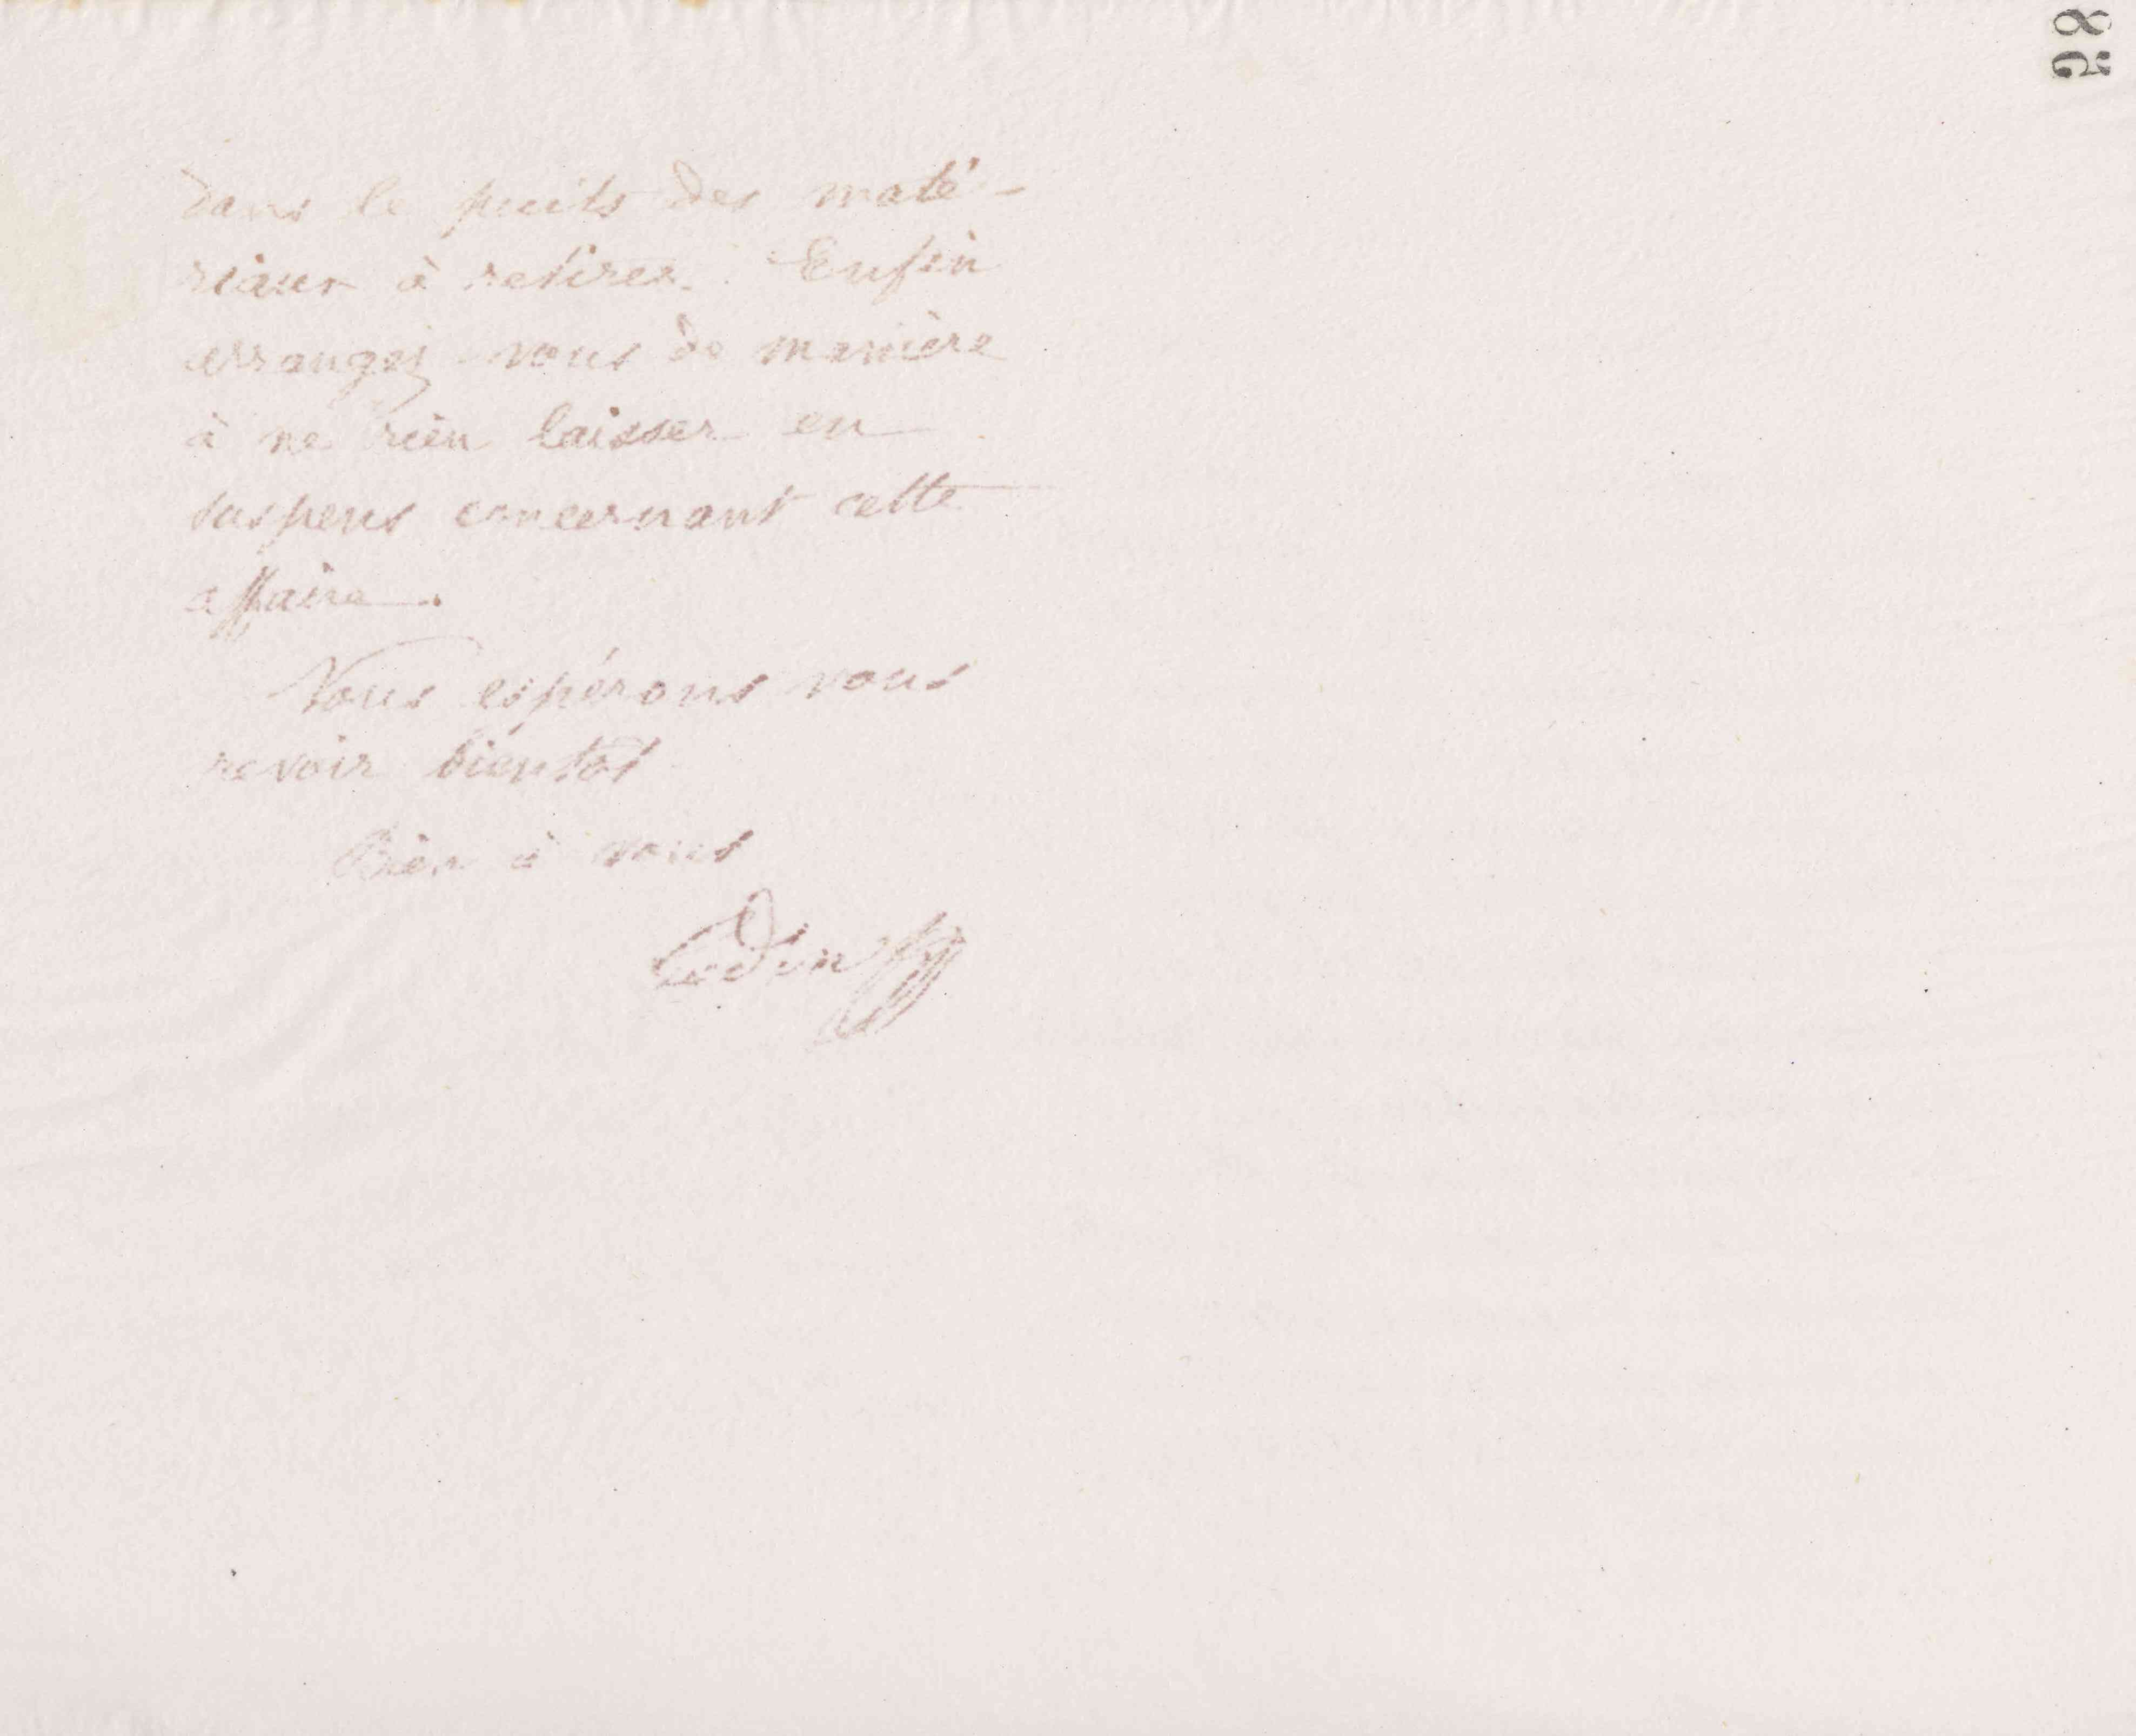 85
dans le puits des maté-
riaux à retirer. Enfin
arrangez-vous de manière
à ne rien laisser en
suspens concernant cette
affaire.
Nous espérons vous
revoir bientôt
Bien à vous
Godin